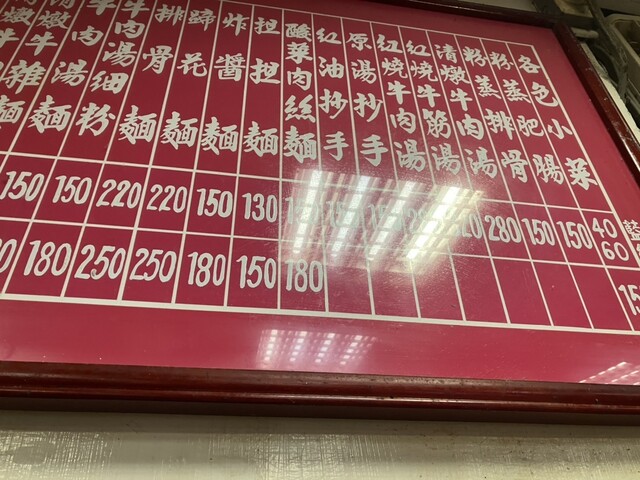 各色小菜
粉蒸肥腸
粉蒸排骨
清燉牛肉湯
紅燒牛筋湯
紅燒牛肉湯
原湯抄手
紅油抄手
酸菜肉絲麵
担担麵
炸醬麵
蹄花麵
排骨麵
牛肉湯細粉
肉湯麵
燉牛雜麵
150 150 220 220 150 130 280 150 150 40 60
180 250 250 180 150 180